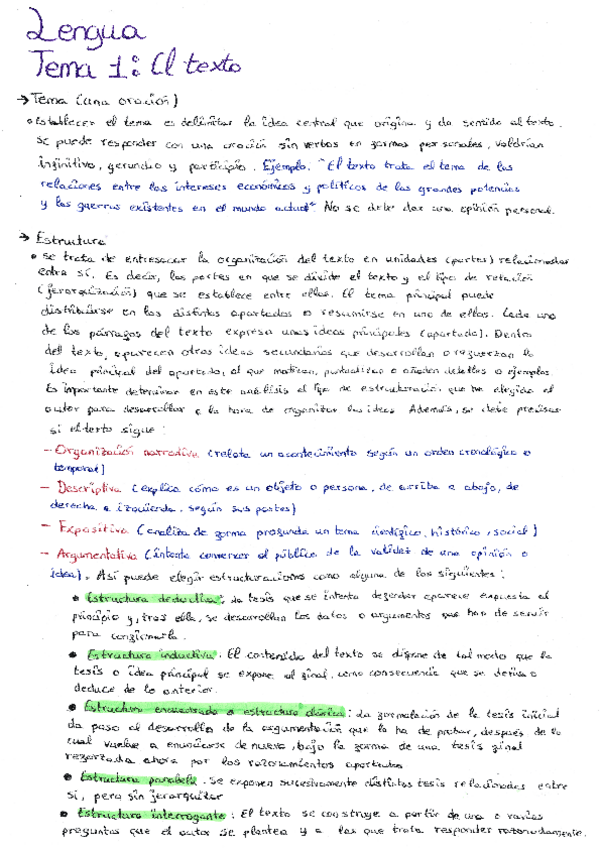 Lengua
Tema 1: El texto
→ Tema (una oración)
• Establecer el tema es delimitar la idea central que origina y da sentido al texto.
Se puede responder con una oración sin verbos en formas personales, valdrían
infinitivo, gerundio y participio. Ejemplo. "El texto trata el tema de las
relaciones entre los intereses económicos y políticos de las grandes potencias
y las guerras existentes en el mundo actual". No se debe dar una opinión personal.
→ Estructura
• Se trata de entresacar la organización del texto en unidades (partes) relacionadas
entre sí. Es decir, las partes en que se divide el texto y el tipo de relación
(jerarquización) que se establece entre ellas. El tema principal puede
distribuirse en los distintos apartados o resumirse en uno de ellos. Cada uno
de los párrafos del texto expresa unas ideas principales (apartado). Dentro
del texto, aparecen otras ideas secundarias que desarrollan o refuerzan la
idea principal del apartado, al que matizan, puntualizan o añaden detalles o ejemplos
Es importante determinar en este análisis el tipo de estructuración que ha elegido el
autor para desarrollar a la hora de organizar las ideas. Además, se debe precisar
si el texto sigue:
- Organización narrativa (relata un acontecimiento según un orden cronológico o
temporal)
- Descriptiva (explica cómo es un objeto o persona, de arriba a abajo, de
derecha a izquierda, según sus partes)
- Expositiva (analiza de forma profunda un tema científico, histórico, social)
- Argumentativa (intenta convencer al público de la validez de una opinión o
idea). Así puede elegir estructuraciones como alguna de las siguientes:
• Estructura deductiva: la tesis que se intenta defender aparece expuesta al
principio y, tras ella, se desarrollan los datos o argumentos que han de servir
para confirmarla.
• Estructura inductiva. El contenido del texto se dispone de tal modo que la
tesis o idea principal se expone al final, como consecuencia que se deriva o
deduce de lo anterior.
• Estructura encuadrada o estructura clásica: La formulación de la tesis inicial
da paso al desarrollo de la argumentación que la ha de probar, después de lo
cual vuelve a enunciarse de nuevo, bajo la forma de una tesis final
reforzada ahora por los razonamientos aportados
• Estructura paralela. Se exponen sucesivamente distintas tesis relacionadas entre
sí, pero sin jerarquizar
• Estructura interrogante: El texto se construye a partir de una o varias
preguntas que el autor se plantea y a las que trata responder razonadamente.